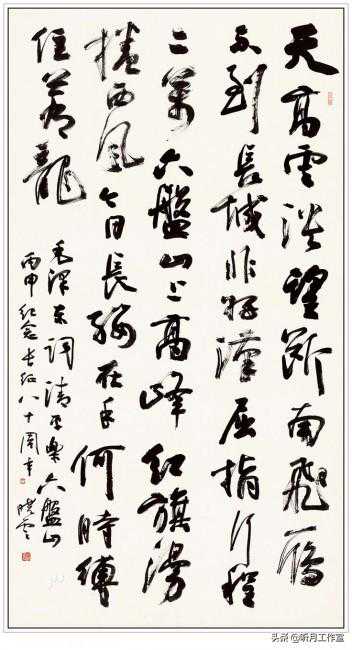 天高雲淡望斷南飛雁
不到長城非好漢屈指行程
二萬六盤山上高峰紅旗漫
捲西風今日長纓在手何時縛
住蒼龍
毛澤東詞清平樂六盤山
丙申紀念長征八十周年曉雲
头条 @昕月工作室